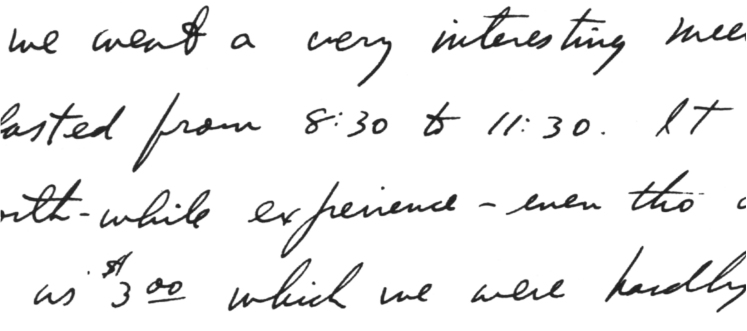 we went a very interesting mee
lasted from 8:30 to 11:30. It
rth-while experience - even tho
as $3.00 which we were hardly